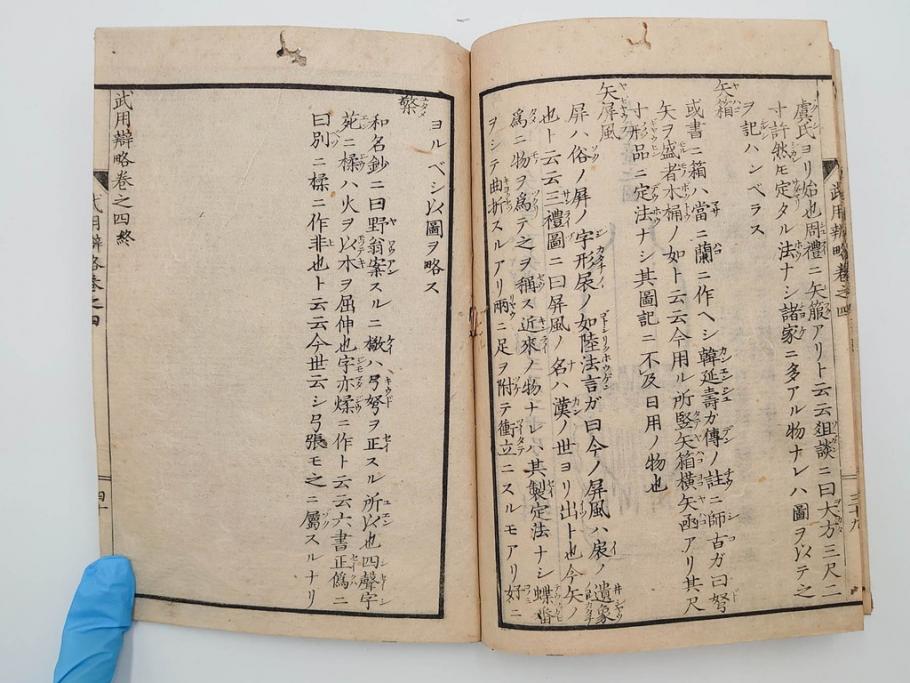 虞氏ヨリ始也周禮ニ矢箙アリト云云爼談ニ曰大方三尺二
寸許然モ定タル法ナシ諸家ニ多アル物ナレハ圖ヲ以テ之
ヲ記ハンベラス
矢箱
或書ニ箱ハ當ニ蘭ニ作ヘシ韓延壽ガ傳ノ註ニ師古ガ曰弩
矢ヲ盛者木桶ノ如ト云云今用ル所竪矢箱横矢函アリ其尺
寸形品ニ定法ナシ其圖記ニ不及日用ノ物也
矢屏風
屏ハ俗ノ屏ノ字形扆ノ如陸法言ガ曰今ノ屏風ハ扆ノ遺象
也ト云云三禮圖ニ曰屏風ノ名ハ漢ノ世ヨリ出ト也今矢ノ
爲ニ物ヲ爲テ之ヲ稱ス近來ノ物ナレハ其製定法ナシ蝶番
ヲシテ曲折スルアリ兩ニ足ヲ附テ衝立ニスルモアリ好ニ
武用辯略卷之四
三十九
ヨルベシ以圖ヲ略ス
檠
和名鈔ニ曰野翁案スルニ檠ハ弓弩ヲ正スル所以也四聲字
苑ニ楺ハ火ヲ以木ヲ屈伸也字亦煣ニ作ト云云六書正僞ニ
曰別ニ楺ニ作非也ト云云今世云シ弓張モ之ニ屬スルナリ
武用辯略卷之四終
武用辯略卷之四
四十